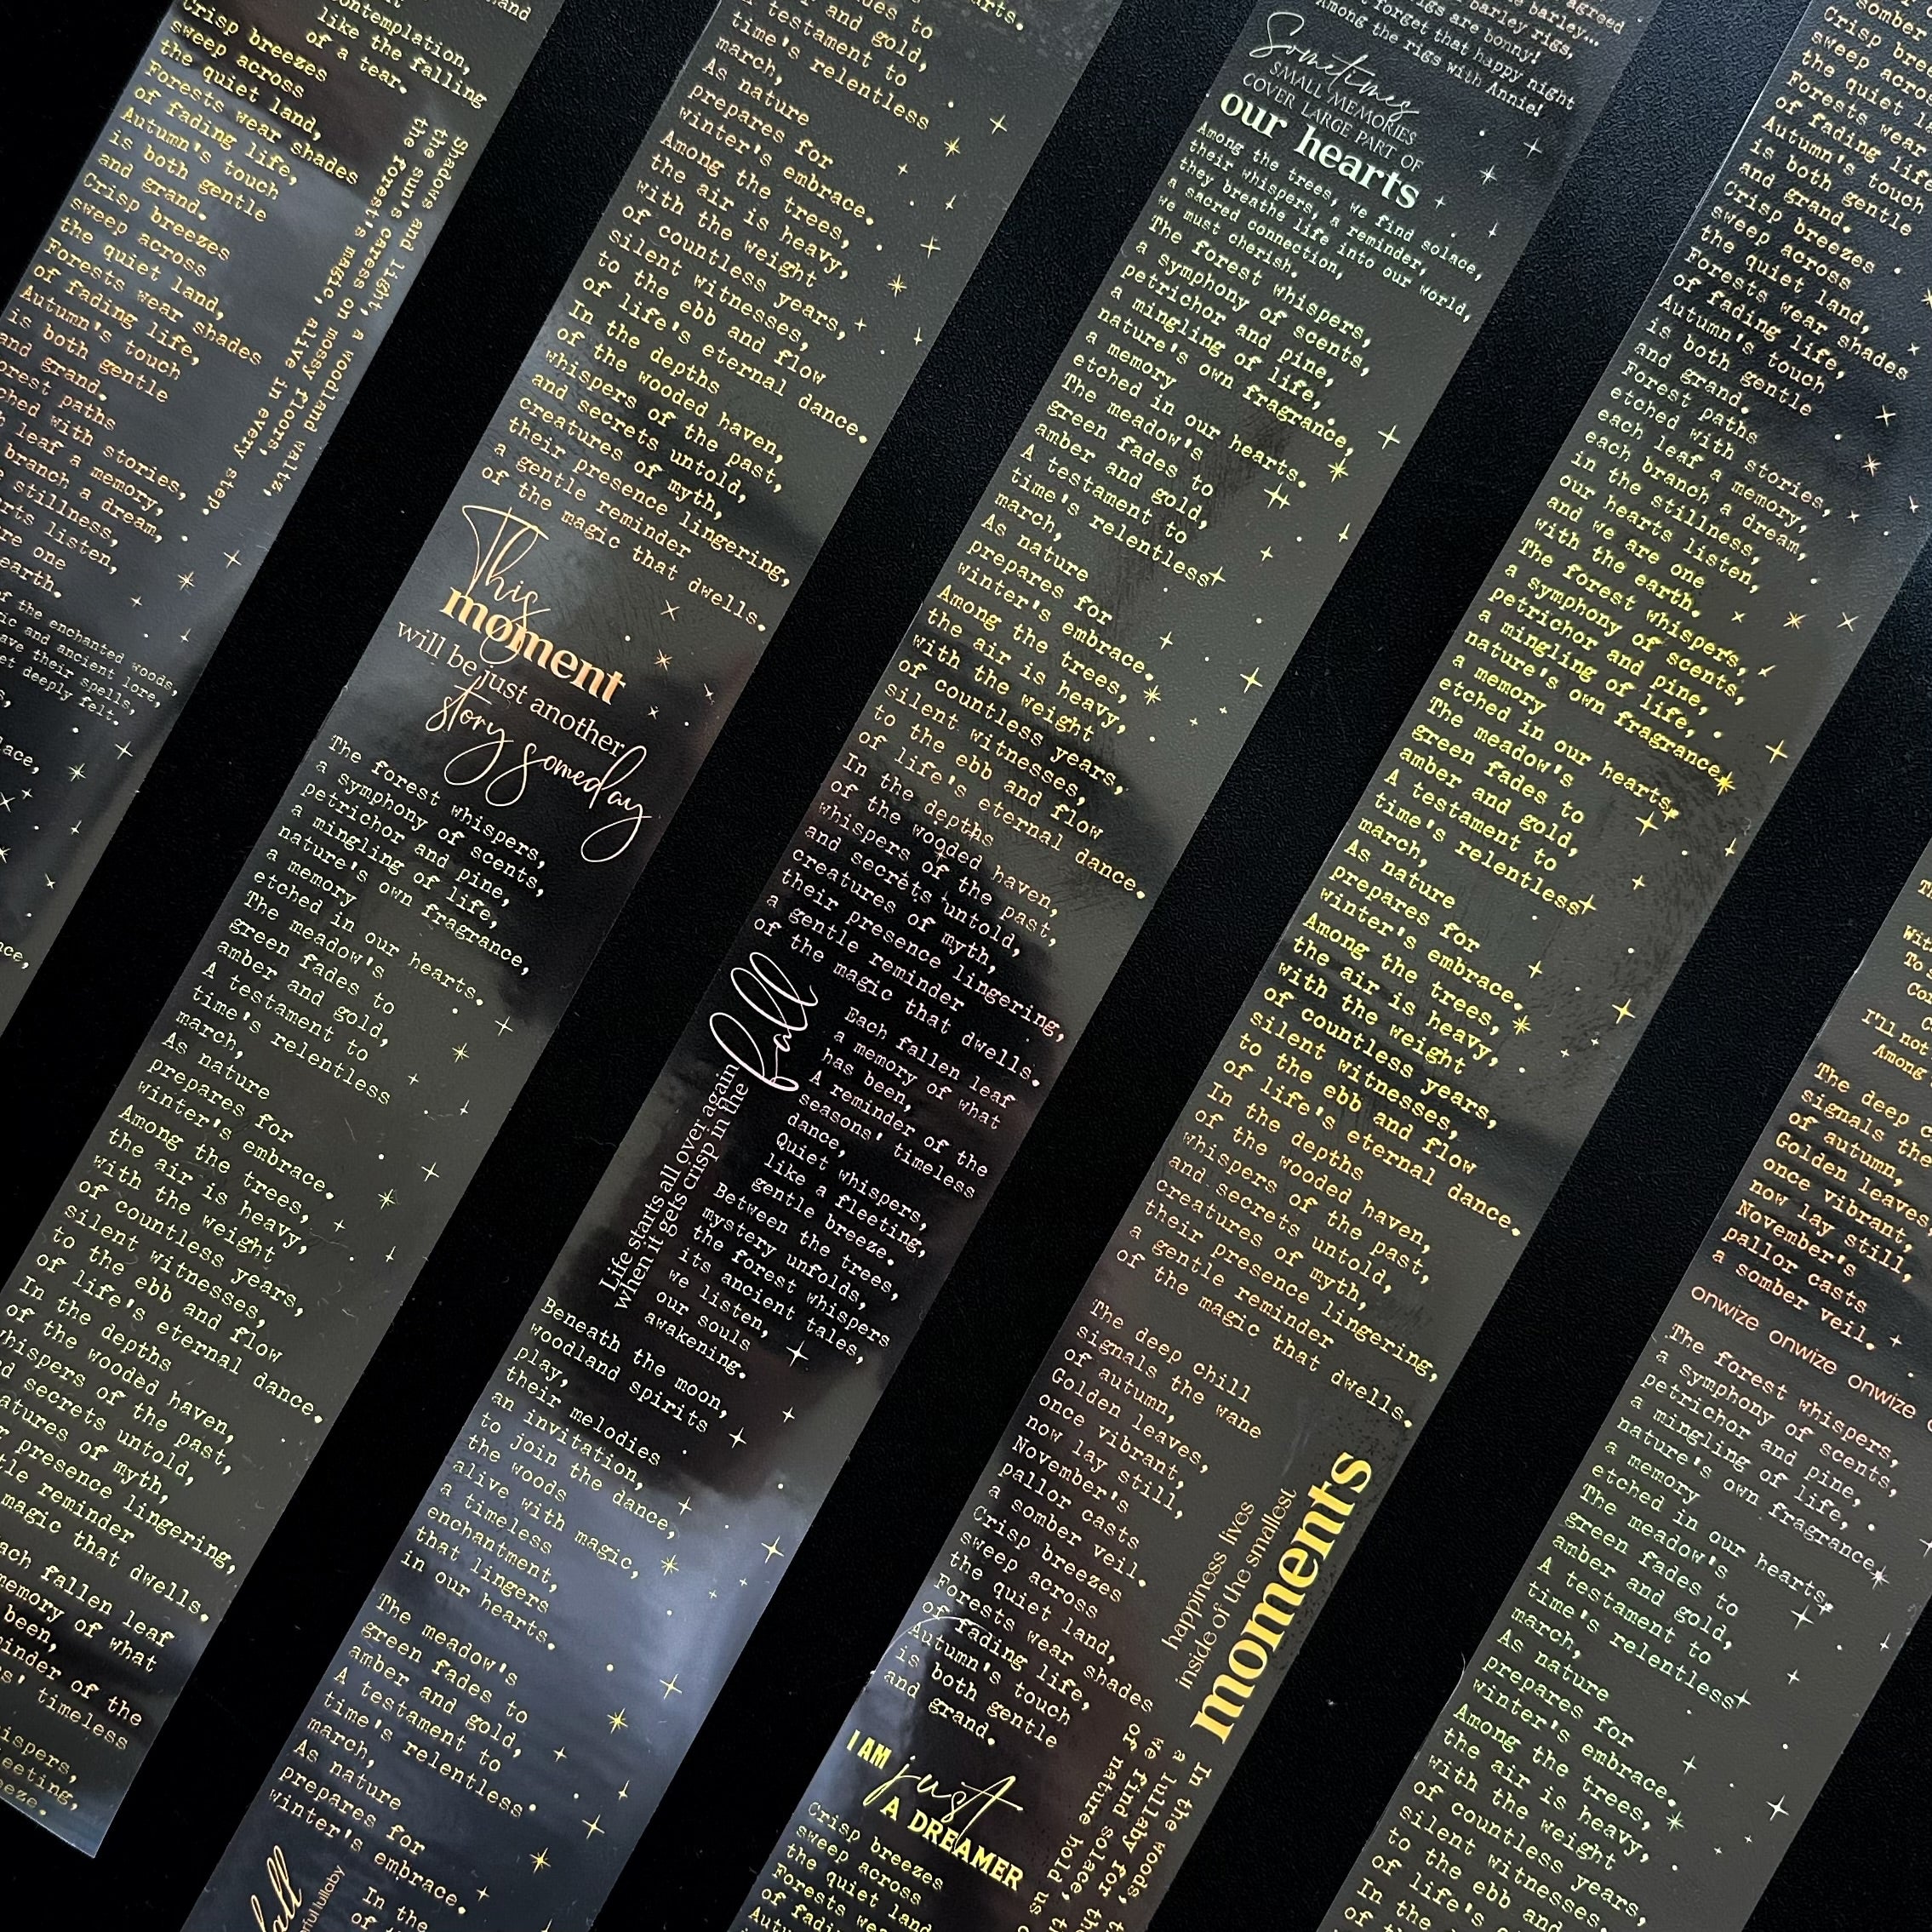 contemplation,
like the falling
of a tear.
Crisp breezes
sweep across
the quiet land,
Forests wear shades
of fading life,
Autumn's touch
is both gentle
and grand.
Crisp breezes
sweep across
the quiet land,
Forests wear shades
of fading life,
Autumn's touch
is both gentle
and grand.
forest paths
with stories,
leaf a memory,
branch a dream,
stillness,
listen,
are one
earth.
Shadows and light, a woodland waltz,
the sun's caress on mossy floors,
the forest's magic, alive in every step.
of the enchanted woods,
and ancient lore,
their spells,
deeply felt.
and gold,
testament to
time's relentless
march,
As nature
prepares for
winter's embrace.
Among the trees,
the air is heavy,
with the weight
of countless years,
silent witnesses,
to the ebb and flow
of life's eternal dance.
In the depths
of the wooded haven,
whispers of the past,
and secrets untold,
creatures of myth,
their presence lingering,
a gentle reminder
of the magic that dwells.
This
møment
will be just another
story someday
The forest whispers,
a symphony of scents,
petrichor and pine,
a mingling of life,
nature's own fragrance,
a memory
etched in our hearts.
The meadow's
green fades to
amber and gold,
A testament to
time's relentless
march,
As nature
prepares for
winter's embrace.
Among the trees,
the air is heavy,
with the weight
of countless years,
silent witnesses,
to the ebb and flow
of life's eternal dance.
In the depths
of the wooded haven,
whispers of the past,
secrets untold,
of myth,
presence lingering,
reminder
magic that dwells.
fallen leaf
memory of what
been,
of the
timeless
barley rigs,
rigs are bonny!
forget that happy night
Among the rigs with Annie!
Sometimes
SMALL MEMORIES
COVER LARGE PART OF
our hearts
Among the trees, we find solace,
their whispers, a reminder,
they breathe life into our world,
a sacred connection,
we must cherish.
The forest whispers,
a symphony of scents,
petrichor and pine,
a mingling of life,
nature's own fragrance,
a memory
etched in our hearts.
The meadow's
green fades to
amber and gold,
A testament to
time's relentless
march,
As nature
prepares for
winter's embrace.
Among the trees,
the air is heavy,
with the weight
of countless years,
silent witnesses,
to the ebb and flow
of life's eternal dance.
In the depths
of the wooded haven,
whispers of the past,
and secrets untold,
creatures of myth,
their presence lingering,
a gentle reminder
of the magic that dwells.
Life starts all over again
when it gets crisp in the
fall
Each fallen leaf
a memory of what
has been,
A reminder of the
seasons' timeless
dance,
Quiet whispers,
like a fleeting,
gentle breeze.
Between the trees,
mystery unfolds,
the forest whispers
its ancient tales,
we listen,
our souls
awakening.
Beneath the moon,
woodland spirits
play,
their melodies
an invitation,
to join the dance,
the woods
alive with magic,
a timeless
enchantment,
that lingers
in our hearts.
The meadow's
green fades to
amber and gold,
A testament to
time's relentless
march,
As nature
prepares for
winter's embrace.
In the
lullaby
Crisp
sweep across
the quiet
Forests wear
of fading
Autumn's touch
is both gentle
and grand.
Crisp breezes
sweep across
the quiet land,
Forests wear shades
of fading life,
Autumn's touch
is both gentle
and grand.
Forest paths
etched with stories,
each leaf a memory,
each branch a dream,
in the stillness,
our hearts listen,
and we are one
with the earth.
The forest whispers,
a symphony of scents,
petrichor and pine,
a mingling of life,
nature's own fragrance,
a memory
etched in our hearts.
The meadow's
green fades to
amber and gold,
A testament to
time's relentless
march,
As nature
prepares for
winter's embrace.
Among the trees,
the air is heavy,
with the weight
of countless years,
silent witnesses,
to the ebb and flow
of life's eternal dance.
In the depths
of the wooded haven,
whispers of the past,
and secrets untold,
creatures of myth,
their presence lingering,
a gentle reminder
of the magic that dwells.
The deep chill
signals the wane
of autumn,
Golden leaves,
once vibrant,
now lay still,
November's
pallor casts
a somber veil.
Crisp breezes
sweep across
the quiet land,
Forests wear shades
of fading life,
Autumn's touch
is both gentle
and grand.
happiness lives
inside of the smallest
moments
I AM just
A DREAMER
In the woods,
a lullaby for
we find solace,
of nature hold us
Crisp breezes
sweep across
the quiet land
Forests
of
I'll not
Among
The deep
signals the
of autumn,
Golden leaves
once vibrant,
now lay still,
November's
pallor casts
a somber veil.
onwize onwize onwize
The forest whispers,
a symphony of scents,
petrichor and pine,
a mingling of life,
nature's own fragrance,
a memory
etched in our hearts.
The meadow's
green fades to
amber and gold,
A testament to
time's relentless
march,
As nature
prepares for
winter's embrace.
Among the trees,
the air is heavy,
with the weight
of countless years,
silent witnesses,
to the ebb and
of life's
In the